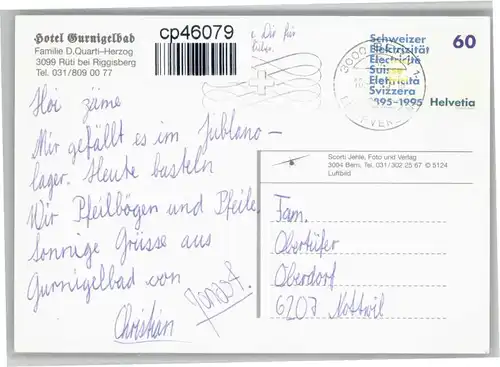 Hotel Gurnigelbad
Familie D.Quarti-Herzog
3099 Rüti bei Riggisberg
Tel. 031/809 00 77
cp46079
Die für
Schweizer
Elektrizität
Electricité
Suisse
Elettricità
Svizzera
1895-1995 Helvetia
60
3000 BERN 1
Hoi zäme
Mir gefällt es im Jublano-
lager. Heute basteln
Wir Pfeilbögen und Pfeile.
Sonnige Grüsse aus
Gurnigelbad von
Christian
Scorti Jehle, Foto und Verlag
3004 Bern, Tel. 031/302 25 67 © 5124
Luftbild
Fam.
Obertüfer
Oberdorf
6207 Nottwil